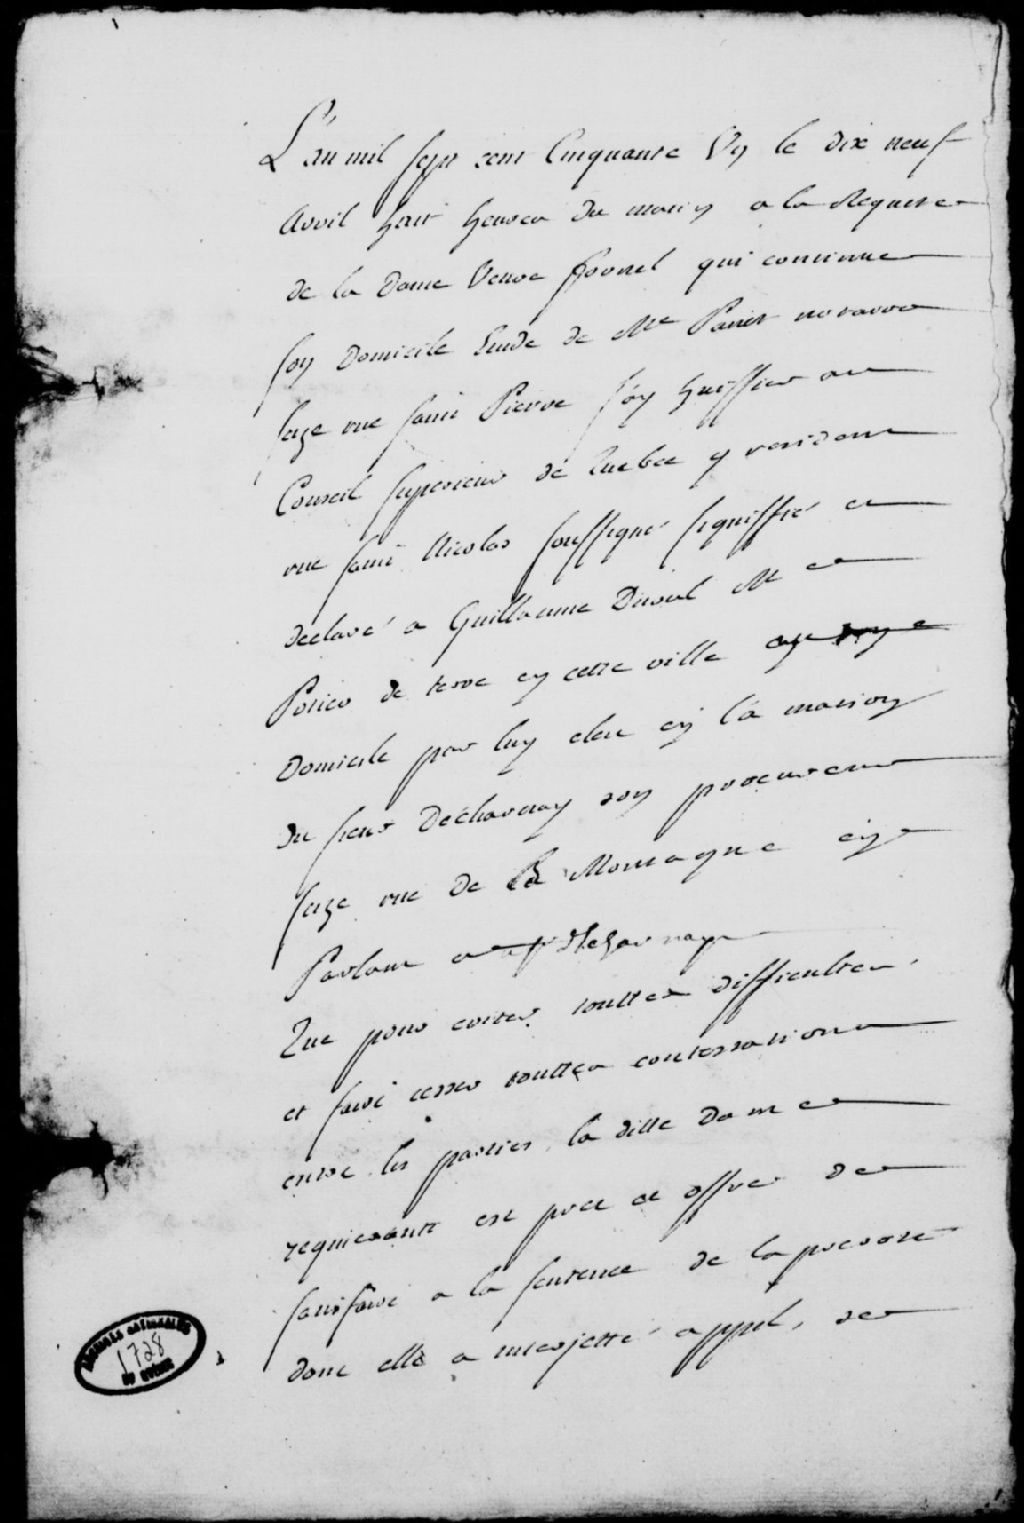 L'an mil sept cent Cinquante Un le dix neuf
avril huit heures du matin a la Requeste
de la Dame Veuve fornel qui continue
son Domicile Etude de Me Panet notaire
size rue saint Pierre J'ay huissier au
Conseil superieur de Quebec y residant
rue saint Nicolas soussigné signiffié et
declaré a Guillaume Duval Me
Potier de terre en cette ville
Domicile par luy elu en la maison
du sieur Decharnay son procureur
size rue de la Montagne en
Parlant a
Que pour eviter touttes difficultes
et faire cesser touttes contestations
entre les parties, la ditte Dame
requerante est prete et offre de
satisfaire a la sentence de la prevosté
dont elle a interjetté appel, de
ARCHIVES NATIONALES
1728
DU QUÉBEC